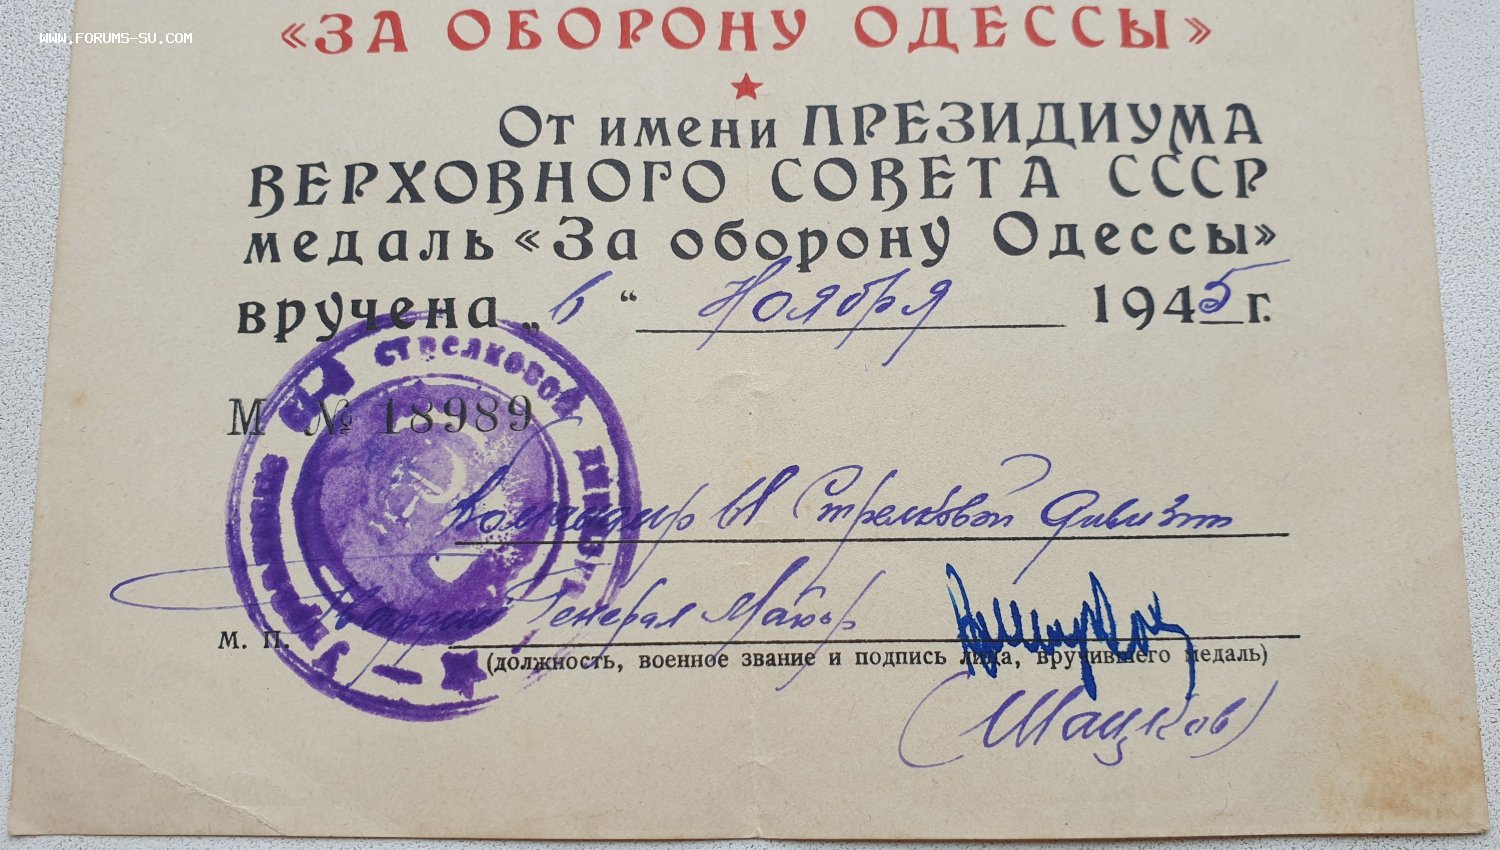 WWW.FORUMS-SU.COM
«ЗА ОБОРОНУ ОДЕССЫ»
От имени ПРЕЗИДИУМА
ВЕРХОВНОГО СОВЕТА СССР
медаль «За оборону Одессы»
вручена „6“ Ноября 1945 г.
М № 18989
Командир 61 Стрелковой Дивизии
Гвардии Генерал Майор
М. П.
(должность, военное звание и подпись лица, вручившего медаль)
(Шацков)
стрелковой дивизии
Управление